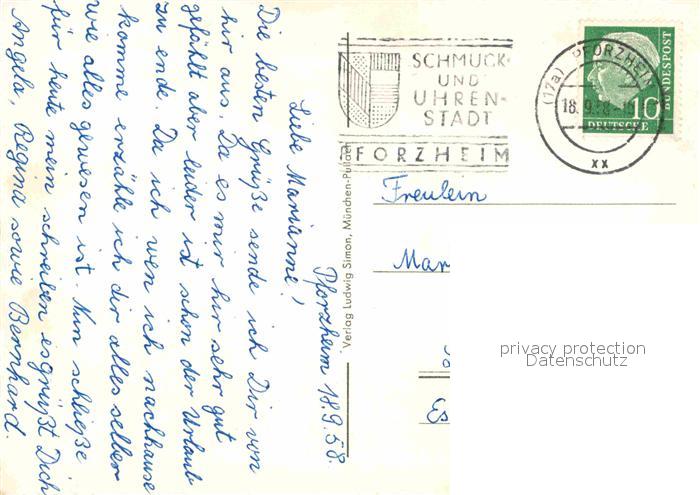 Pforzheim 18.9.58.
Liebe Marianne!
Die besten Grüße sende ich Dir von
hir aus. Da es mir hir sehr gut
gefällt aber leider ist schon der Urlaub
zu ende. Da ich wen ich nachhause
komme erzähle ich dir alles selber
wie alles gewesen ist. Nun schließe
für heute mein schreiben es grüßt Dich
Angela, Regina sowie Bernhard.
Verlag Ludwig Simon, München-Pullach
SCHMUCK-
UND
UHREN-
STADT
PFORZHEIM
(17a) PFORZHEIM
18.9.58
xx
10
DEUTSCHE
BUNDESPOST
Freulein
Mar
Es
privacy protection
Datenschutz